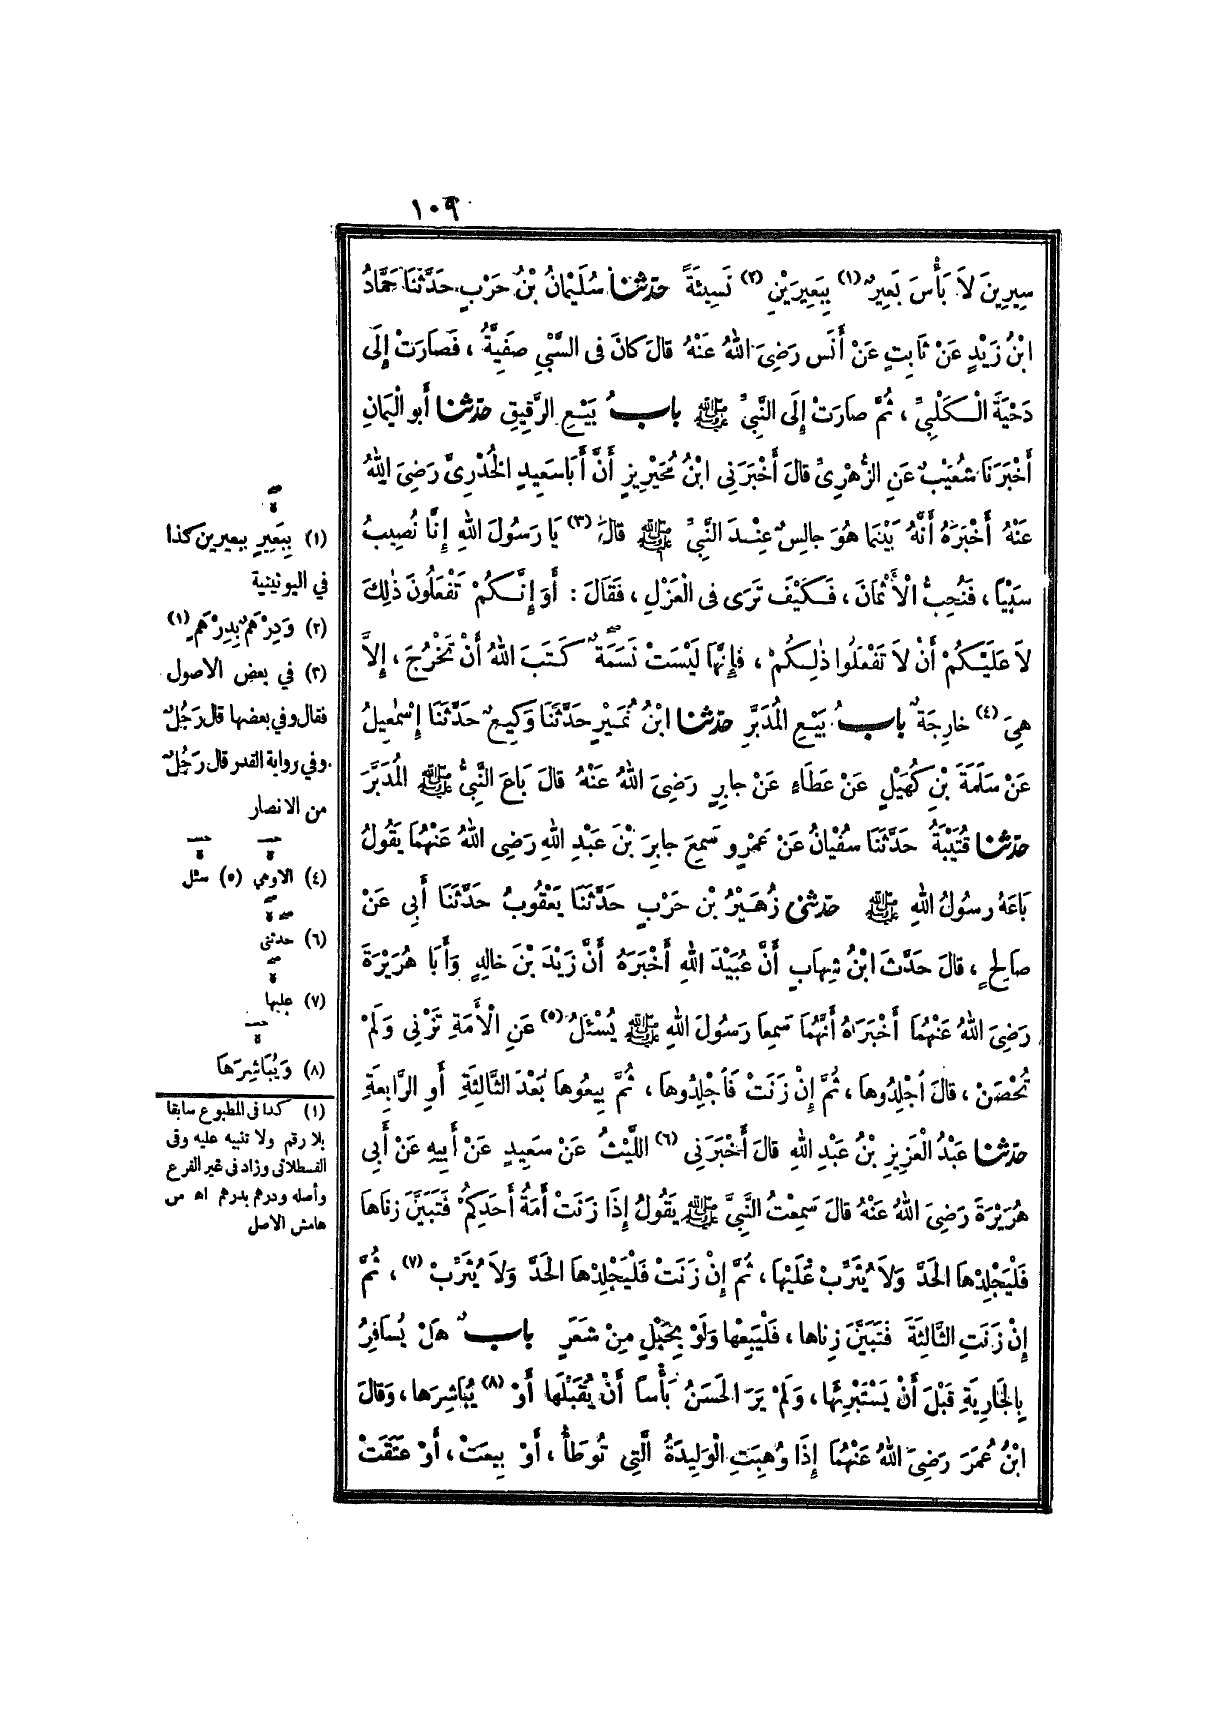 ١٠٩
سِيرِينَ لاَ بَأْسَ بَعِيرٌ (١) بِبَعِيرَيْنِ (٢) نَسِيئَةً حَدَّثَنَا سُلَيْمانُ بْنُ حَرْبٍ حَدَّثَنَا حَمَّادُ
ابْنُ زَيْدٍ عَنْ ثَابِتٍ عَنْ أَنَسٍ رَضِيَ اللهُ عَنْهُ قالَ كانَ فى السَّبْيِ صَفِيَّةُ ، فَصَارَتْ إِلَى
دَحْيَةَ الْكَلْبِيِّ ، ثُمَّ صَارَتْ إِلَى النَّبِيِّ ﷺ بابُ بَيْعِ الرَّقِيقِ حَدَّثَنَا أَبو الْيَمانِ
أَخْبَرَنَا شُعَيْبٌ عَنِ الزُّهْرِىِّ قالَ أَخْبَرَنِي ابْنُ مُحَيْرِيزٍ أَنَّ أَبَا سَعِيدٍ الخُدْرِىَّ رَضِيَ اللهُ
عَنْهُ أَخْبَرَهُ أَنَّهُ بَيْنَمَا هُوَ جالِسٌ عِنْدَ النَّبِيِّ ﷺ قالَ (٣) يَا رَسُولَ اللهِ إِنَّا نُصِيبُ
سَبْيًا ، فَنُحِبُّ الْأَثْمَانَ ، فَكَيْفَ تَرَى فى الْعَزْلِ ، فَقَالَ : أَوَ إِنَّكُمْ تَفْعَلُونَ ذٰلِكَ
لاَ عَلَيْكُمْ أَنْ لاَ تَفْعَلُوا ذٰلِكُمْ ، فَإِنَّهَا لَيْسَتْ نَسَمَةٌ كَتَبَ اللهُ أَنْ تَخْرُجَ ، إِلاَّ
هِيَ (٤) خارِجَةٌ بابُ بَيْعِ الْمُدَبَّرِ حَدَّثَنَا ابْنُ نُمَيْرٍ حَدَّثَنَا وَكِيعٌ حَدَّثَنَا إِسْمٰعِيلُ
عَنْ سَلَمَةَ بْنِ كُهَيْلٍ عَنْ عَطَاءٍ عَنْ جابِرٍ رَضِيَ اللهُ عَنْهُ قالَ بَاعَ النَّبِيُّ ﷺ الْمُدَبَّرَ
حَدَّثَنَا قُتَيْبَةُ حَدَّثَنَا سُفْيَانُ عَنْ عَمْرٍو سَمِعَ جابِرَ بْنَ عَبْدِ اللهِ رَضِيَ اللهُ عَنْهُمَا يَقُولُ
بَاعَهُ رَسُولُ اللهِ ﷺ حَدَّثَنِي زُهَيْرُ بْنُ حَرْبٍ حَدَّثَنَا يَعْقُوبُ حَدَّثَنَا أَبِى عَنْ
صَالِحٍ ، قالَ حَدَّثَ ابْنُ شِهَابٍ أَنَّ عُبَيْدَ اللهِ أَخْبَرَهُ أَنَّ زَيْدَ بْنَ خالِدٍ وَأَبَا هُرَيْرَةَ
رَضِيَ اللهُ عَنْهُمَا أَخْبَرَاهُ أَنَّهُمَا سَمِعَا رَسُولَ اللهِ ﷺ يُسْئَلُ (٥) عَنِ الْأَمَةِ تَزْنِى وَلَمْ
تُحْصَنْ ، قالَ اجْلِدُوهَا ، ثُمَّ إِنْ زَنَتْ فَاجْلِدُوهَا ، ثُمَّ بِيعُوهَا بَعْدَ الثَّالِثَةِ أَوِ الرَّابِعَةِ
حَدَّثَنَا عَبْدُ الْعَزِيزِ بْنُ عَبْدِ اللهِ قالَ أَخْبَرَنِي (٦) اللَّيْثُ عَنْ سَعِيدٍ عَنْ أَبِيهِ عَنْ أَبِى
هُرَيْرَةَ رَضِيَ اللهُ عَنْهُ قالَ سَمِعْتُ النَّبِيَّ ﷺ يَقُولُ إِذَا زَنَتْ أَمَةُ أَحَدِكُمْ فَتَبَيَّنَ زِناهَا
فَلْيَجْلِدْهَا الحَدَّ وَلاَ يُثَرِّبْ عَلَيْهَا ، ثُمَّ إِنْ زَنَتْ فَلْيَجْلِدْهَا الحَدَّ وَلاَ يُثَرِّبْ (٧) ، ثُمَّ
إِنْ زَنَتِ الثَّالِثَةَ فَتَبَيَّنَ زِناهَا ، فَلْيَبِعْهَا وَلَوْ بِحَبْلٍ مِنْ شَعَرٍ بابٌ هَلْ يُسَافِرُ
بِالجَارِيَةِ قَبْلَ أَنْ يَسْتَبْرِئَهَا ، وَلَمْ يَرَ الحَسَنُ بَأْسًا أَنْ يُقَبِّلَهَا أَوْ (٨) يُبَاشِرَهَا ، وَقَالَ
ابْنُ عُمَرَ رَضِيَ اللهُ عَنْهُمَا إِذَا وُهِبَتِ الْوَلِيدَةُ الَّتِي تُوطَأُ ، أَوْ بِيعَتْ ، أَوْ عَتَقَتْ
(١) بِبَعِيرٍ ببعيرين كذا
في اليونينية
(٢) وَدِرْهَمٌ بِدِرْهَمٍ (١)
(٣) في بعض الاصول
فقال وفي بعضها قال رَجُلٌ
وفي رواية القدر قال رَجُلٌ
من الانصار
(٤) الاوهي (٥) سئل
(٦) حدثني
(٧) عليها
(٨) وَيُبَاشِرَهَا
(١) كذا فى المطبوع سابقا
بلا رقم ولا تنبيه عليه وفى
القسطلانى وزاد فى غير الفرع
وأصله ودرهم بدرهم اه من
هامش الاصل